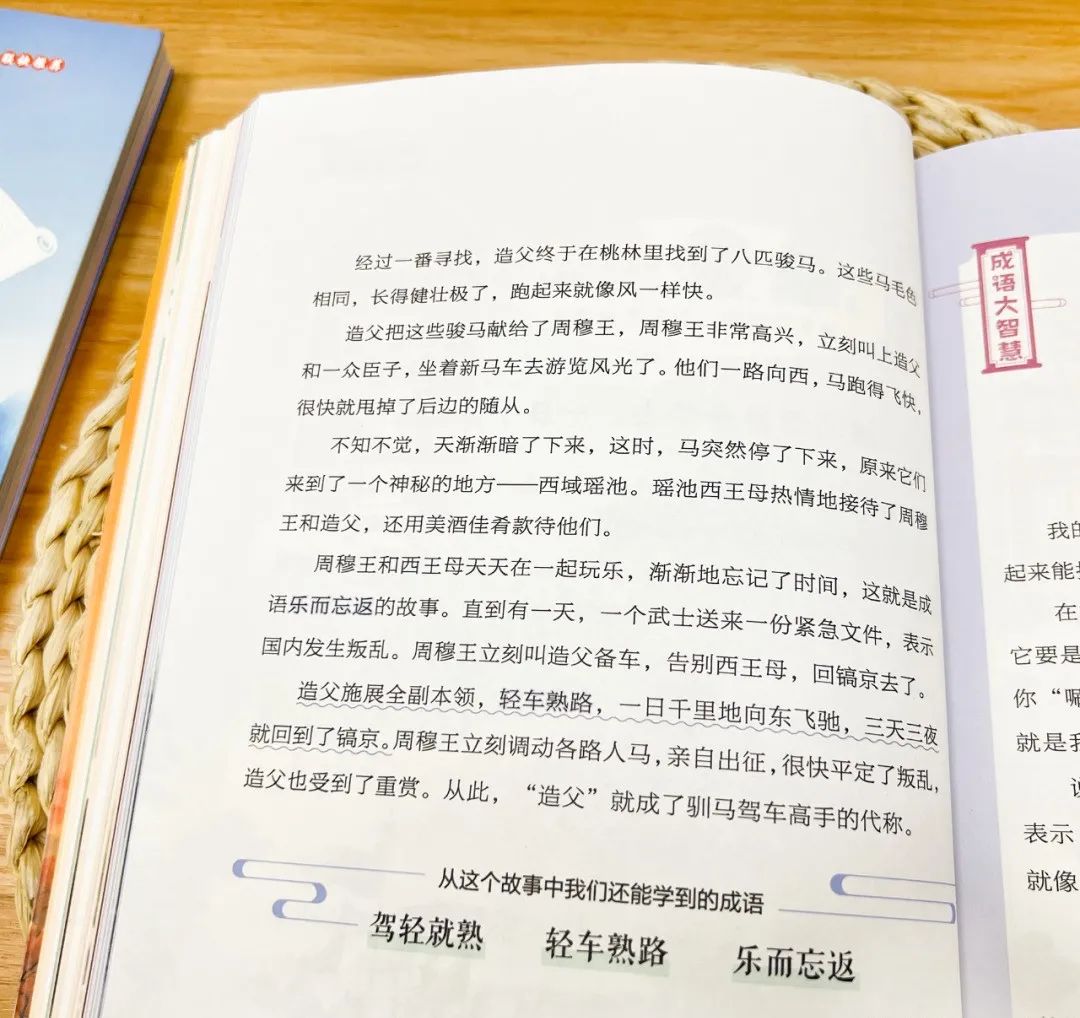 经过一番寻找，造父终于在桃林里找到了八匹骏马。这些马毛色
相同，长得健壮极了，跑起来就像风一样快。
造父把这些骏马献给了周穆王，周穆王非常高兴，立刻叫上造父
和一众臣子，坐着新马车去游览风光了。他们一路向西，马跑得飞快，
很快就甩掉了后边的随从。
不知不觉，天渐渐暗了下来，这时，马突然停了下来，原来它们
来到了一个神秘的地方——西域瑶池。瑶池西王母热情地接待了周穆
王和造父，还用美酒佳肴款待他们。
周穆王和西王母天天在一起玩乐，渐渐地忘记了时间，这就是成
语乐而忘返的故事。直到有一天，一个武士送来一份紧急文件，表示
国内发生叛乱。周穆王立刻叫造父备车，告别西王母，回镐京去了。
造父施展全副本领，轻车熟路，一日千里地向东飞驰，三天三夜
就回到了镐京。周穆王立刻调动各路人马，亲自出征，很快平定了叛乱，
造父也受到了重赏。从此，“造父”就成了驯马驾车高手的代称。
从这个故事中我们还能学到的成语
驾轻就熟 轻车熟路 乐而忘返
成语大智慧
我的
起来能
在
它要是
你“嗯
就是我
表示
就像